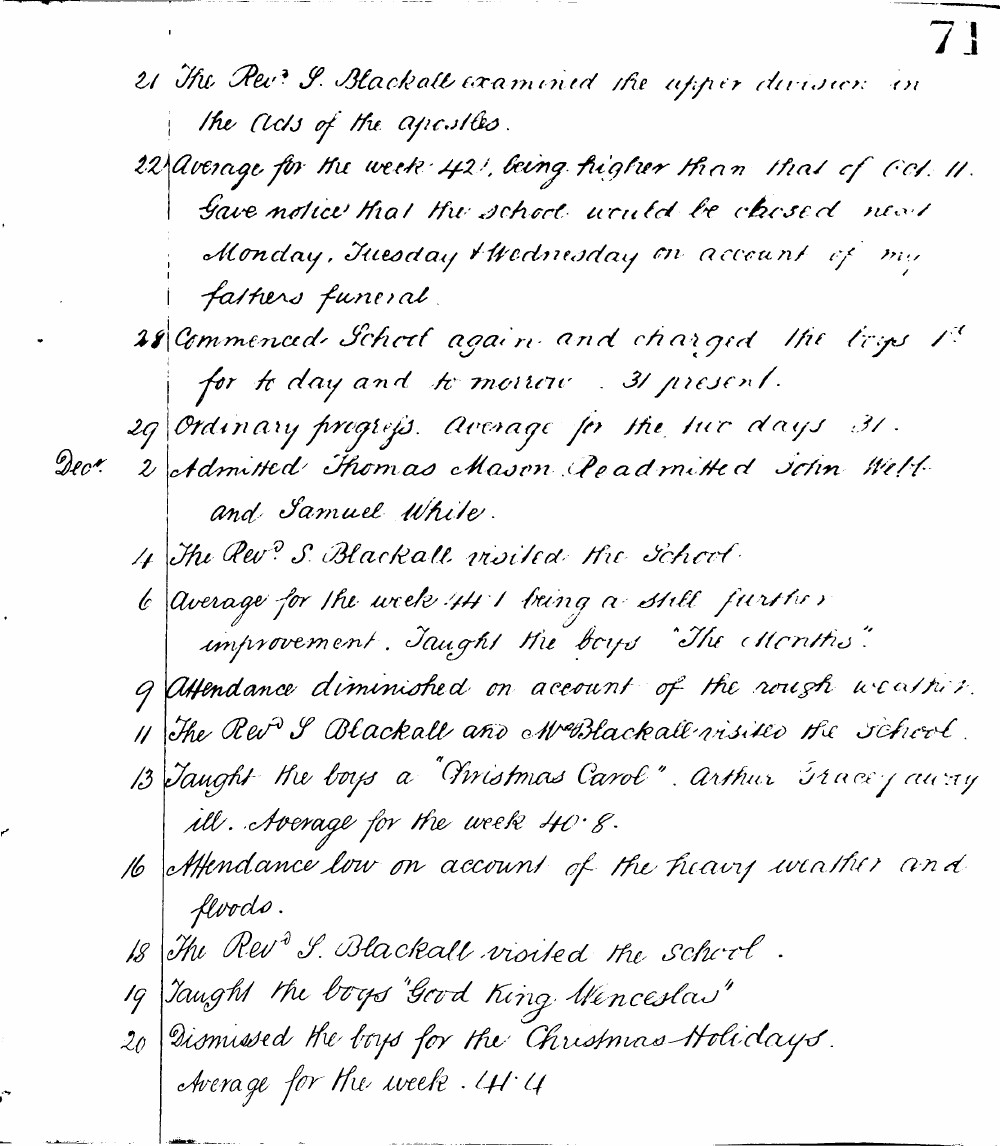 71
21 The Revd S. Blackall examined the upper division in
the Acts of the Apostles.
22 Average for the week 42·1, being higher than that of Oct. 11.
Gave notice that the school would be closed next
Monday, Tuesday & Wednesday on account of my
fathers funeral.
28 Commenced School again and charged the boys 1d
for to day and to morrow. 31 present.
29 Ordinary progress. Average for the two days 31.
Decr. 2 Admitted Thomas Mason. Readmitted John Webb
and Samuel White.
4 The Revd S. Blackall visited the School.
6 Average for the week 44·1 being a still further
improvement. Taught the boys "The Months".
9 Attendance diminished on account of the rough weather.
11 The Revd S Blackall and Mrs Blackall visited the School.
13 Taught the boys a "Christmas Carol". Arthur Tracey away
ill. Average for the week 40·8.
16 Attendance low on account of the heavy weather and
floods.
18 The Revd S. Blackall visited the School.
19 Taught the boys "Good King Wenceslas"
20 Dismissed the boys for the Christmas Holidays.
Average for the week. 41·4